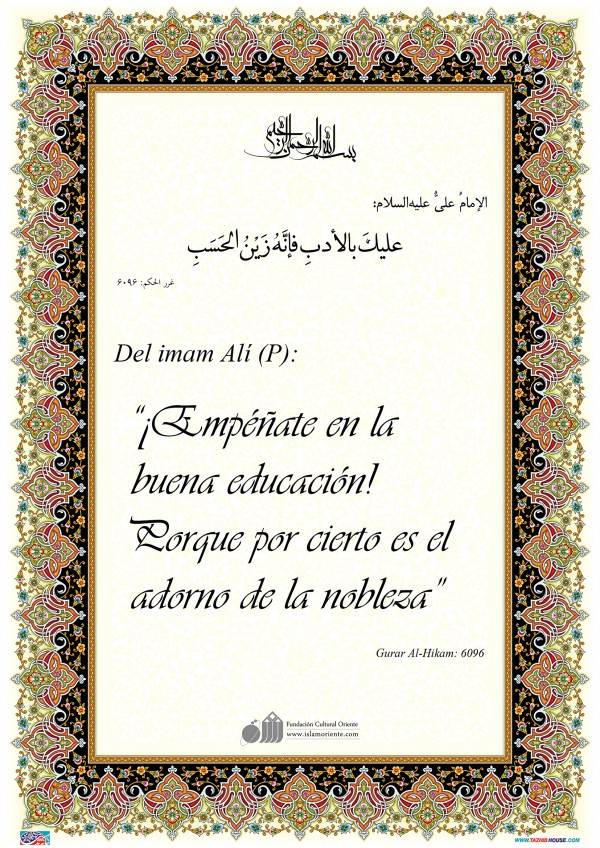 بسم الله الرحمن الرحيم
الإمامُ علیٌّ علیه‌السلام:
عليكَ بالأدبِ فإنَّهُ زَيْنُ الحَسَبِ
غرر الحكم: ۶۰۹۶
Del imam Alí (P):
“¡Empéñate en la
buena educación!
Porque por cierto es el
adorno de la nobleza”
Gurar Al-Hikam: 6096
Fundación Cultural Oriente
www.islamoriente.com
WWW.TAZHIBHOUSE.COM